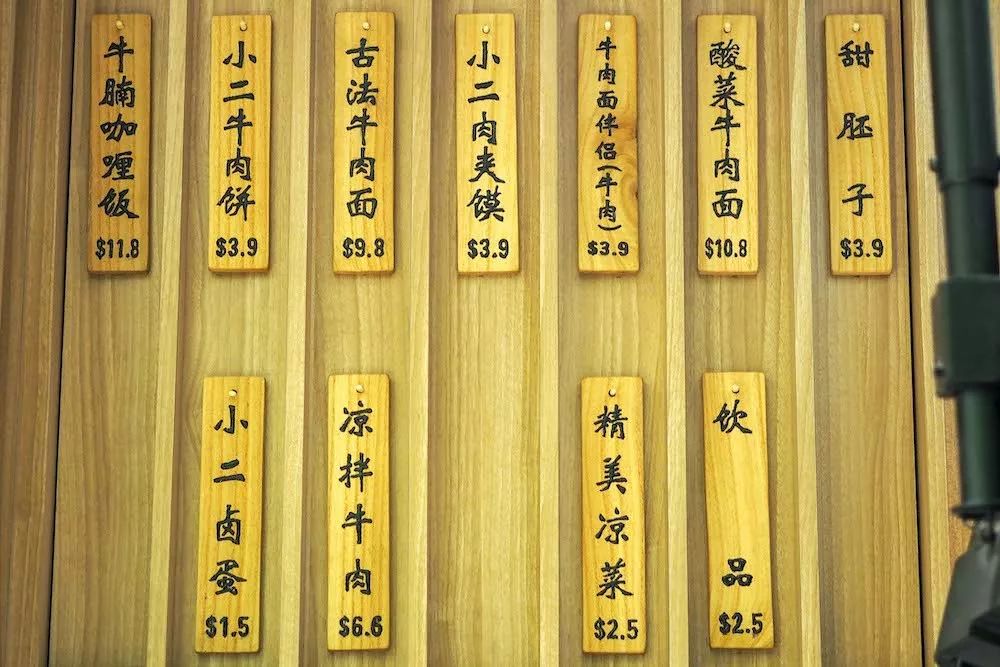 牛腩咖喱饭
$11.8
小二牛肉饼
$3.9
古法牛肉面
$9.8
小二肉夹馍
$3.9
牛肉面伴侣(牛肉)
$3.9
酸菜牛肉面
$10.8
甜胚子
$3.9
小二卤蛋
$1.5
凉拌牛肉
$6.6
精美凉菜
$2.5
饮品
$2.5